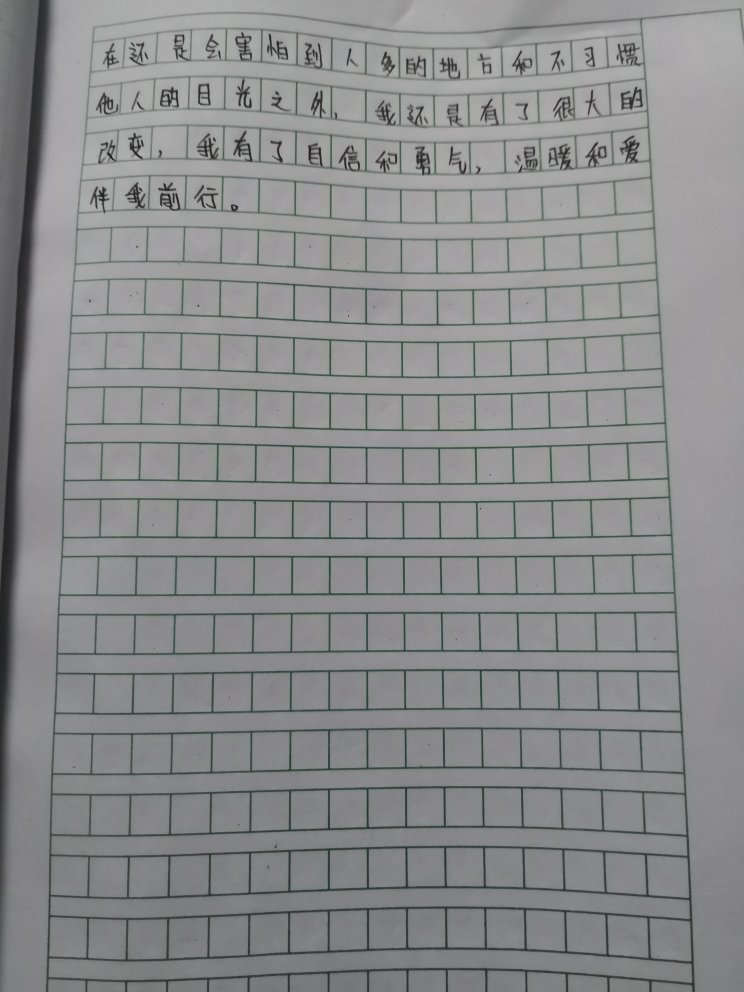 在还是会害怕到人多的地方和不习惯
他人的目光之外，我还是有了很大的
改变，我有了自信和勇气，温暖和爱
伴我前行。